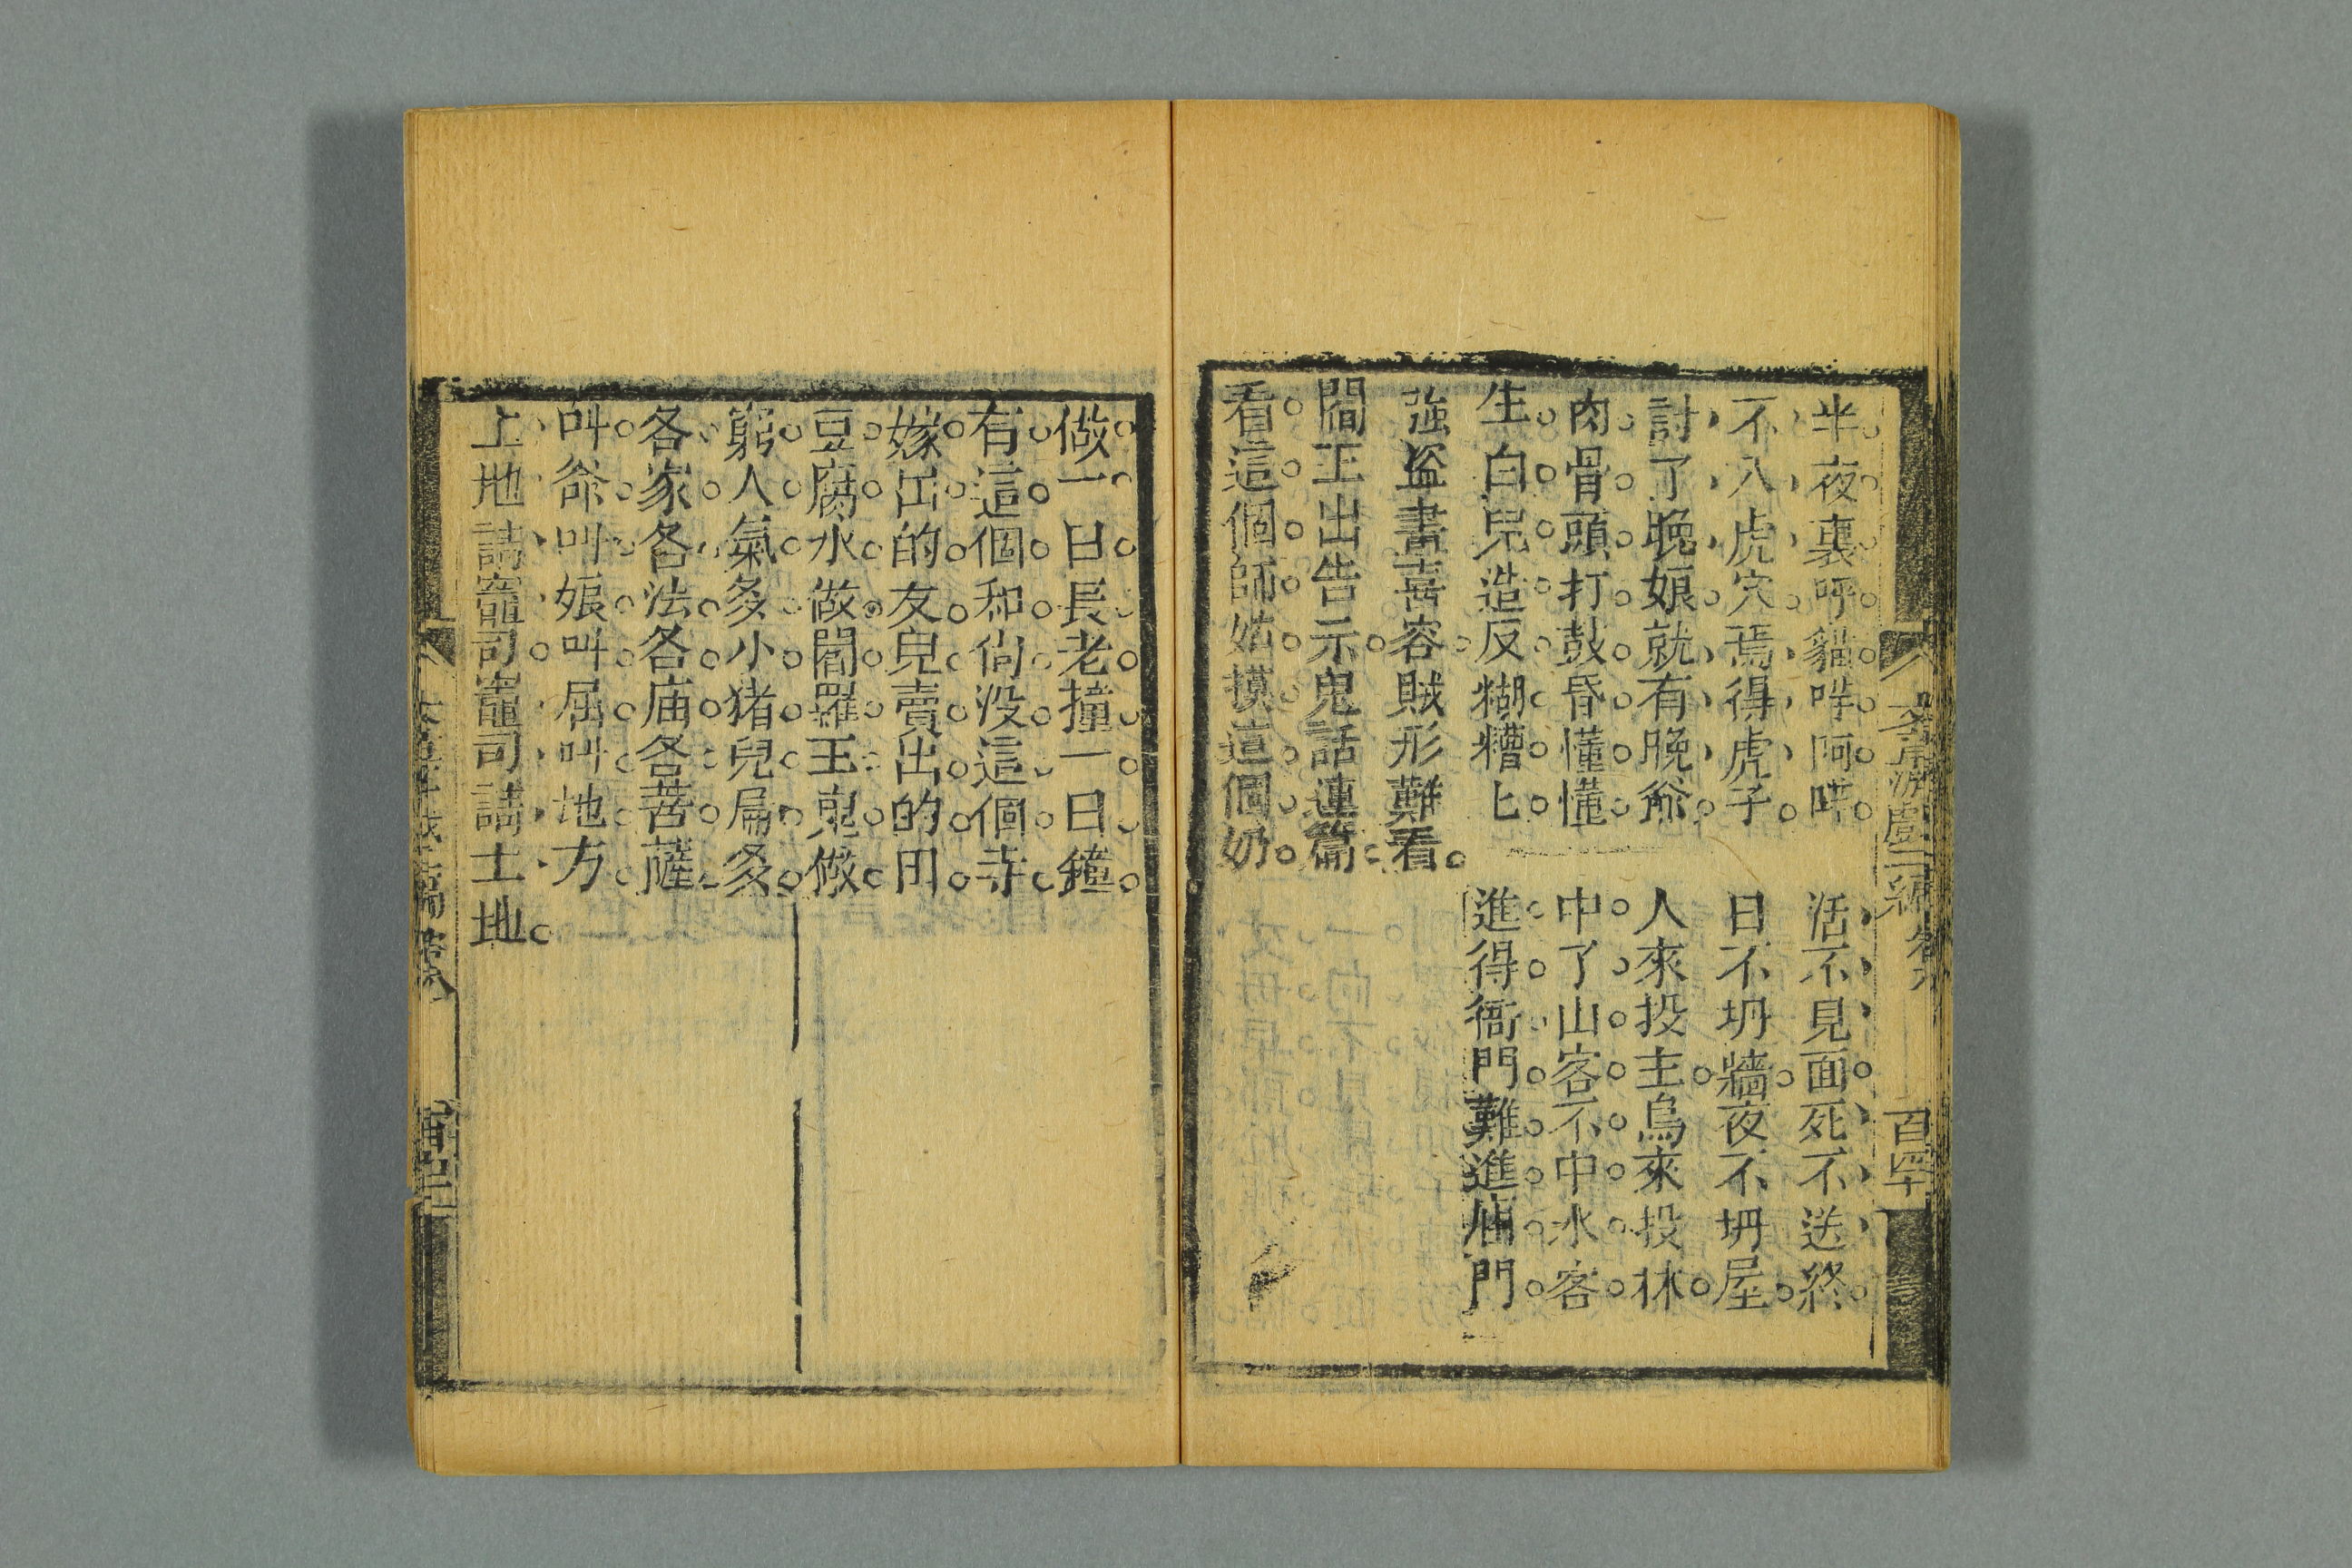 半夜裏呼貓呼阿
活不見面死不送終
不入虎穴焉得虎子
日不坍牆夜不坍屋
討了晚娘就有晚爺
人來投主鳥來投林
肉骨頭打鼓昏懂懂
中了山客不中水客
生白兒造反糊糟匕
進得衙門難進廟門
強盜畫喜容賊形難看
閻王出告示鬼話連篇
看這個師姑摸這個奶
百四十
做一日長老撞一日鐘
有這個和尙没這個寺
嫁出的友兒賣出的田
豆腐水做閻羅王鬼做
窮人氣多小猪兒扁多
各家各法各庙各菩薩
叫爺叫娘叫屈叫地方
土地請竈司竈司請土地